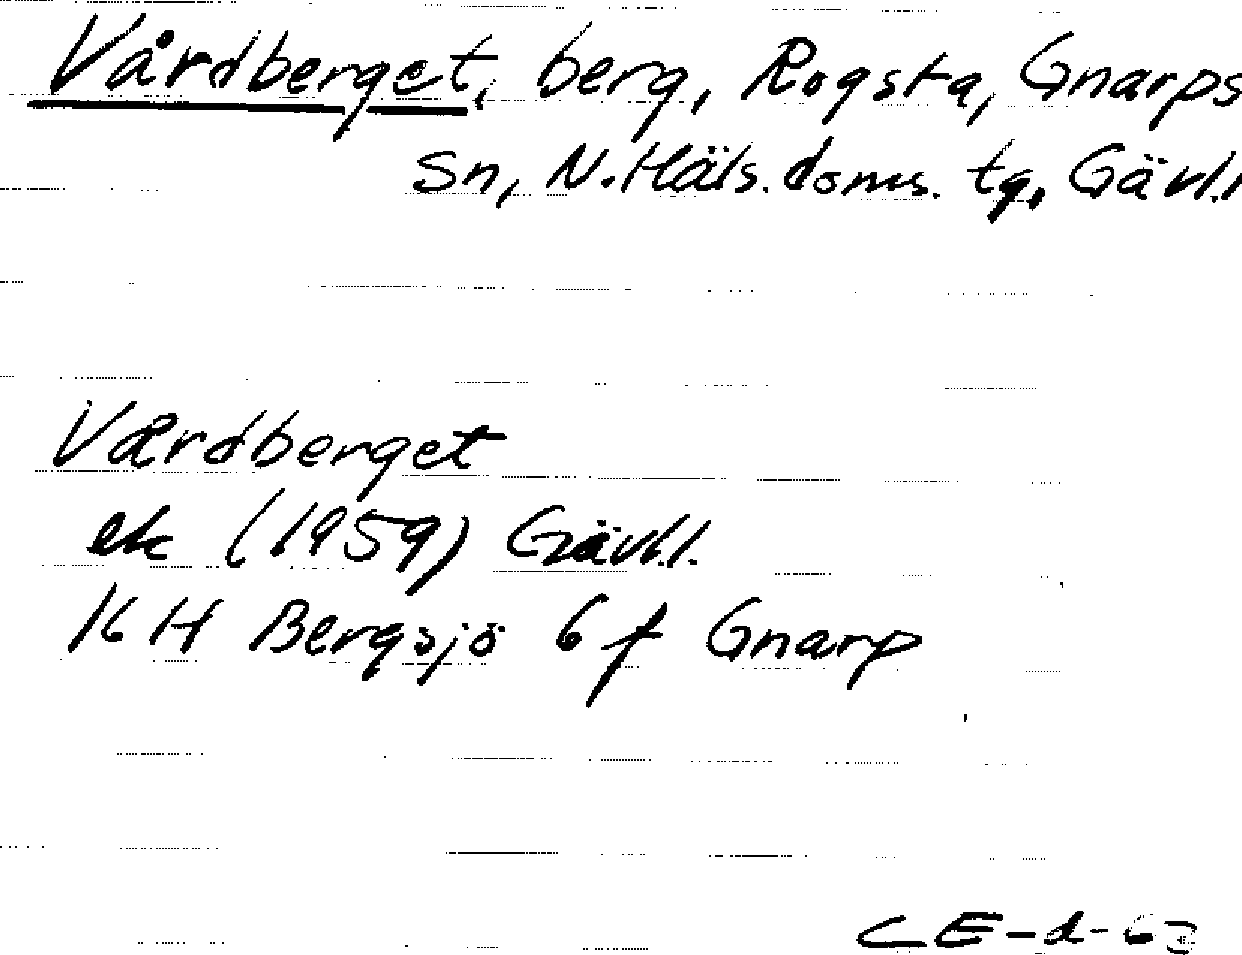 Vårdberget, berg, Rogsta, Gnarps
sn, N. Häls. doms. tg, Gävl.l
Værdberget
ek (1959) Gävl.l.
KH Bergsjö 6f Gnarp
CE-d-63